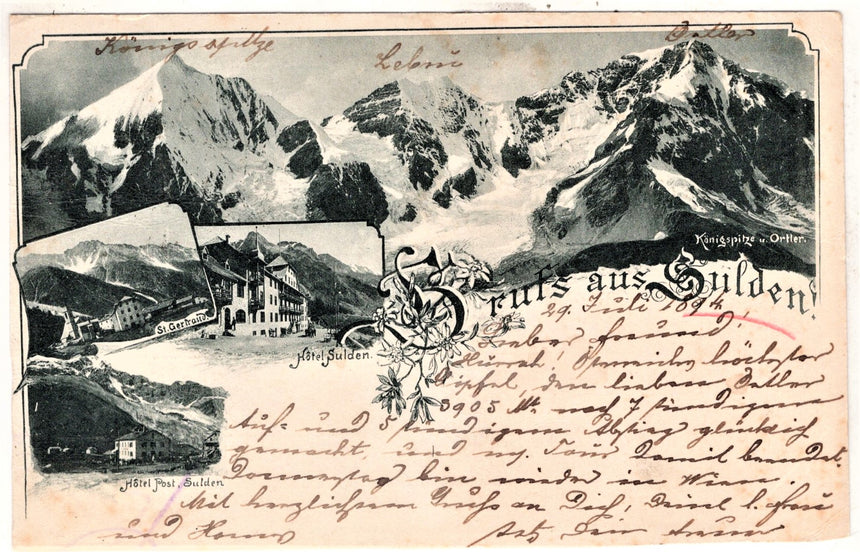 Königsspitze
Zebru
Ortler
Königspitze u. Ortler.
St. Gertraud.
Hôtel Sulden.
Gruſs aus Sulden!
29. Juli 1894
Lieber Freund!
Hurrah! Österreichs höchsten
Gipfel, den lieben Ortler
3905 Mt. nach 7 stündigem
Auf- und 5 stündigem Abstieg glücklich
gemacht, und m. Tour damit beendet.
Donnerstag bin wieder in Wien.
Hôtel Post, Sulden
Mit herzlichsten Gruß an Dich, Deine l. Frau
und
stets Dein